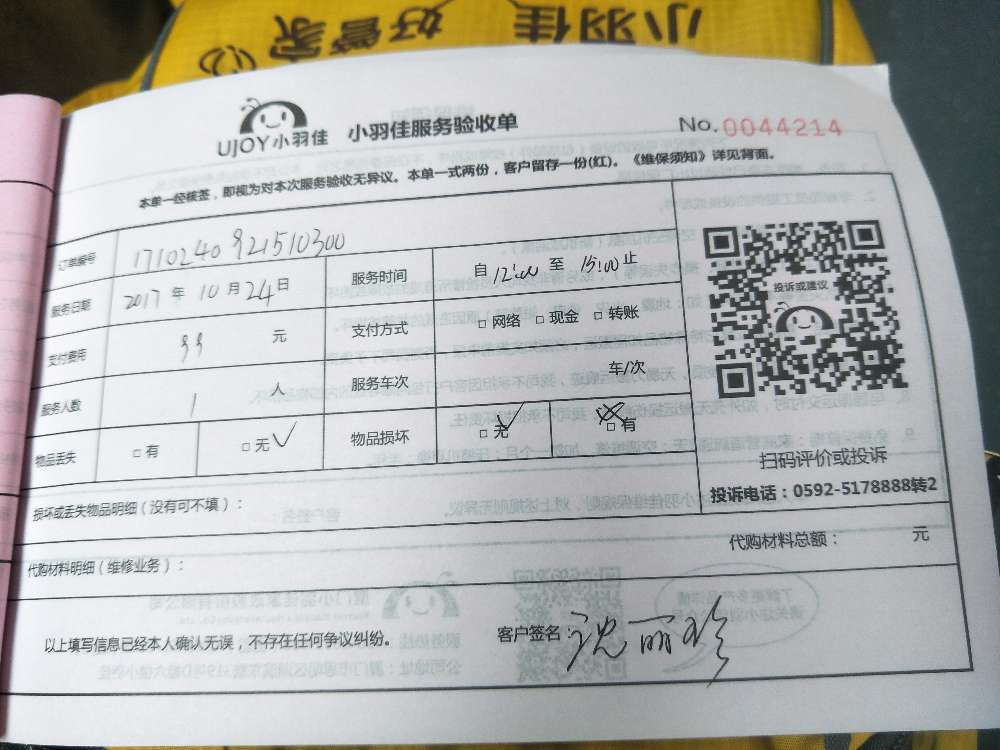 小羽佳 好管家
UJOY小羽佳 小羽佳服务验收单 No.0044214
本单一经核签，即视为对本次服务验收无异议。本单一式两份，客户留存一份(红)。《维保须知》详见背面。
订单编号
服务日期 2017 年 10 月 24 日 服务时间 自 12:00 至 15:00 止
支付费用 99 元 支付方式 □ 网络 □ 现金 □ 转账
服务人数 1 人 服务车次 车/次
物品丢失 □ 有 □ 无 物品损坏 □ 无 □ 有
投诉或建议
扫码评价或投诉
投诉电话：0592-5178888转2
损坏或丢失物品明细（没有可不填）：
代购材料明细（维修业务）： 代购材料总额： 元
以上填写信息已经本人确认无误，不存在任何争议纠纷。 客户签名 沈丽珍